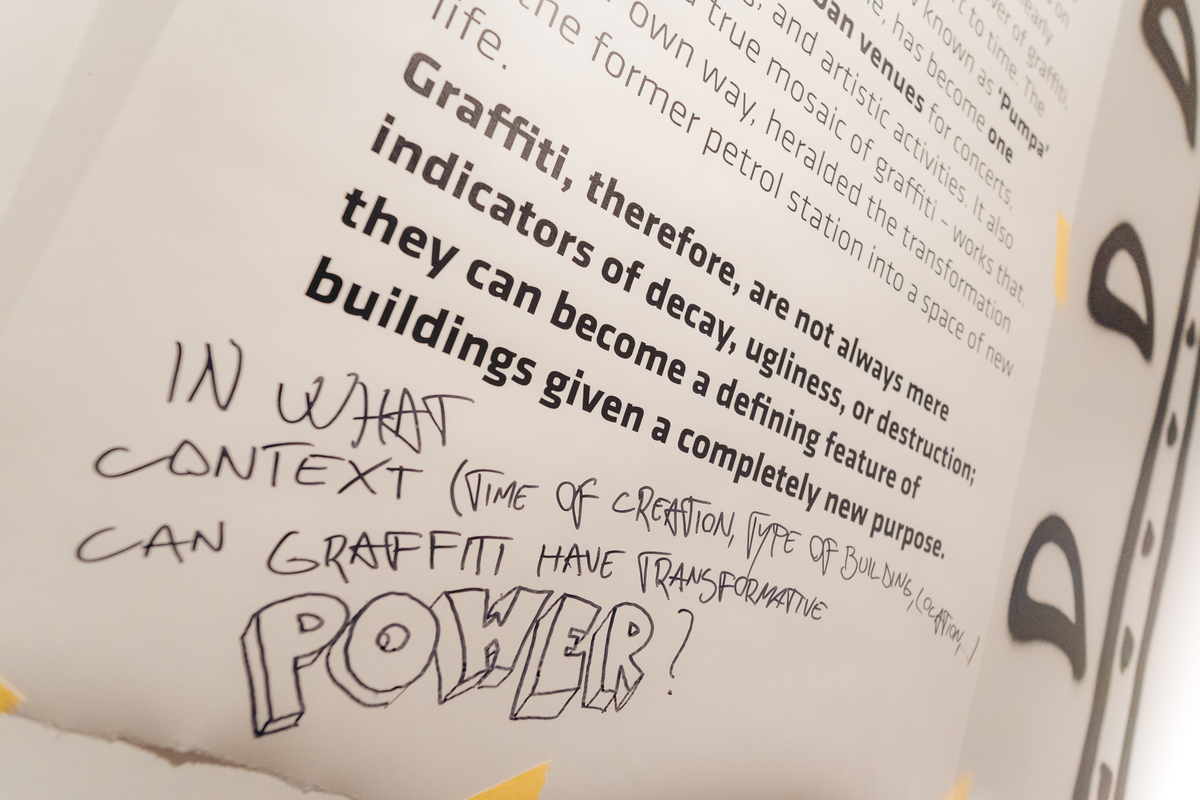 on
early
of graffiti,
to time. The
known as ‘Pumpa’
has become one
venues for concerts,
and artistic activities. It also
true mosaic of graffiti – works that,
own way, heralded the transformation
the former petrol station into a space of new
life.
Graffiti, therefore, are not always mere
indicators of decay, ugliness, or destruction;
they can become a defining feature of
buildings given a completely new purpose.
IN WHAT
CONTEXT (TIME OF CREATION, TYPE OF BUILDING, LOCATION,...)
CAN GRAFFITI HAVE TRANSFORMATIVE
POWER?